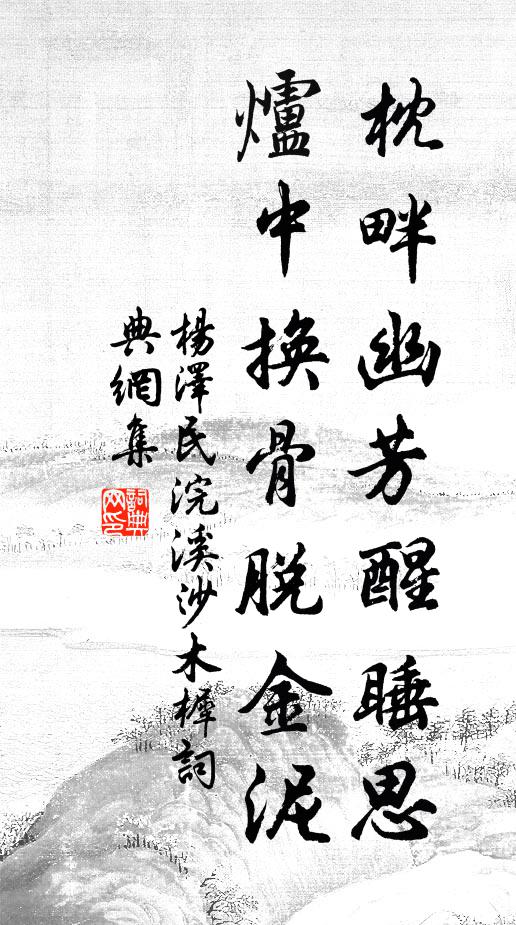 枕畔幽芳醒睡思
爐中換骨脫金泥
楊澤民浣溪沙木樨詞
典網集
詞典網印